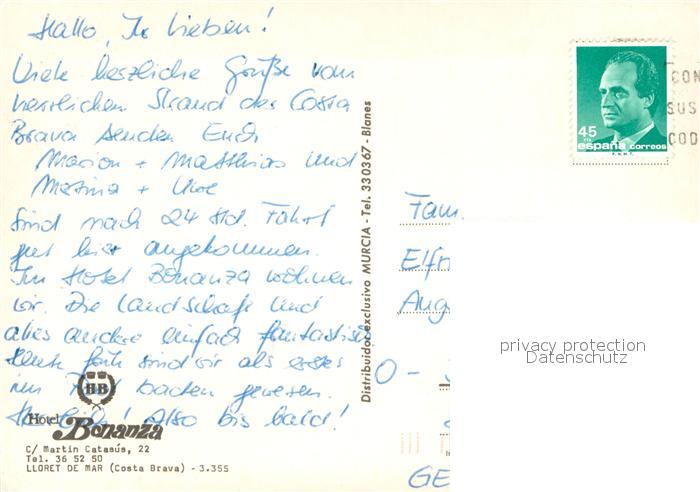 Hallo, Ihr Lieben!
Viele herzliche Grüße vom
herrlichen Strand der Costa
Brava senden Euch
Marion + Matthias und
Martina + Uwe
Sind nach 24 Std. Fahrt
gut hier angekommen.
Im Hotel Bonanza wohnen
wir. Die Landschaft und
alles andere einfach fantastisch
Heute früh sind wir als erstes
baden gewesen.
Also bis bald!
HB
Hotel Bonanza
C/ Martin Catasús, 22
Tel. 36 52 50
LLORET DE MAR (Costa Brava) - 3.355
Distribuidor exclusivo MURCIA - Tel. 330367 - Blanes
45
PTA
españa correos
F.N.M.T.
CON
SUS
COD
Fam.
Elfr
Aug
O -
GE
privacy protection
Datenschutz